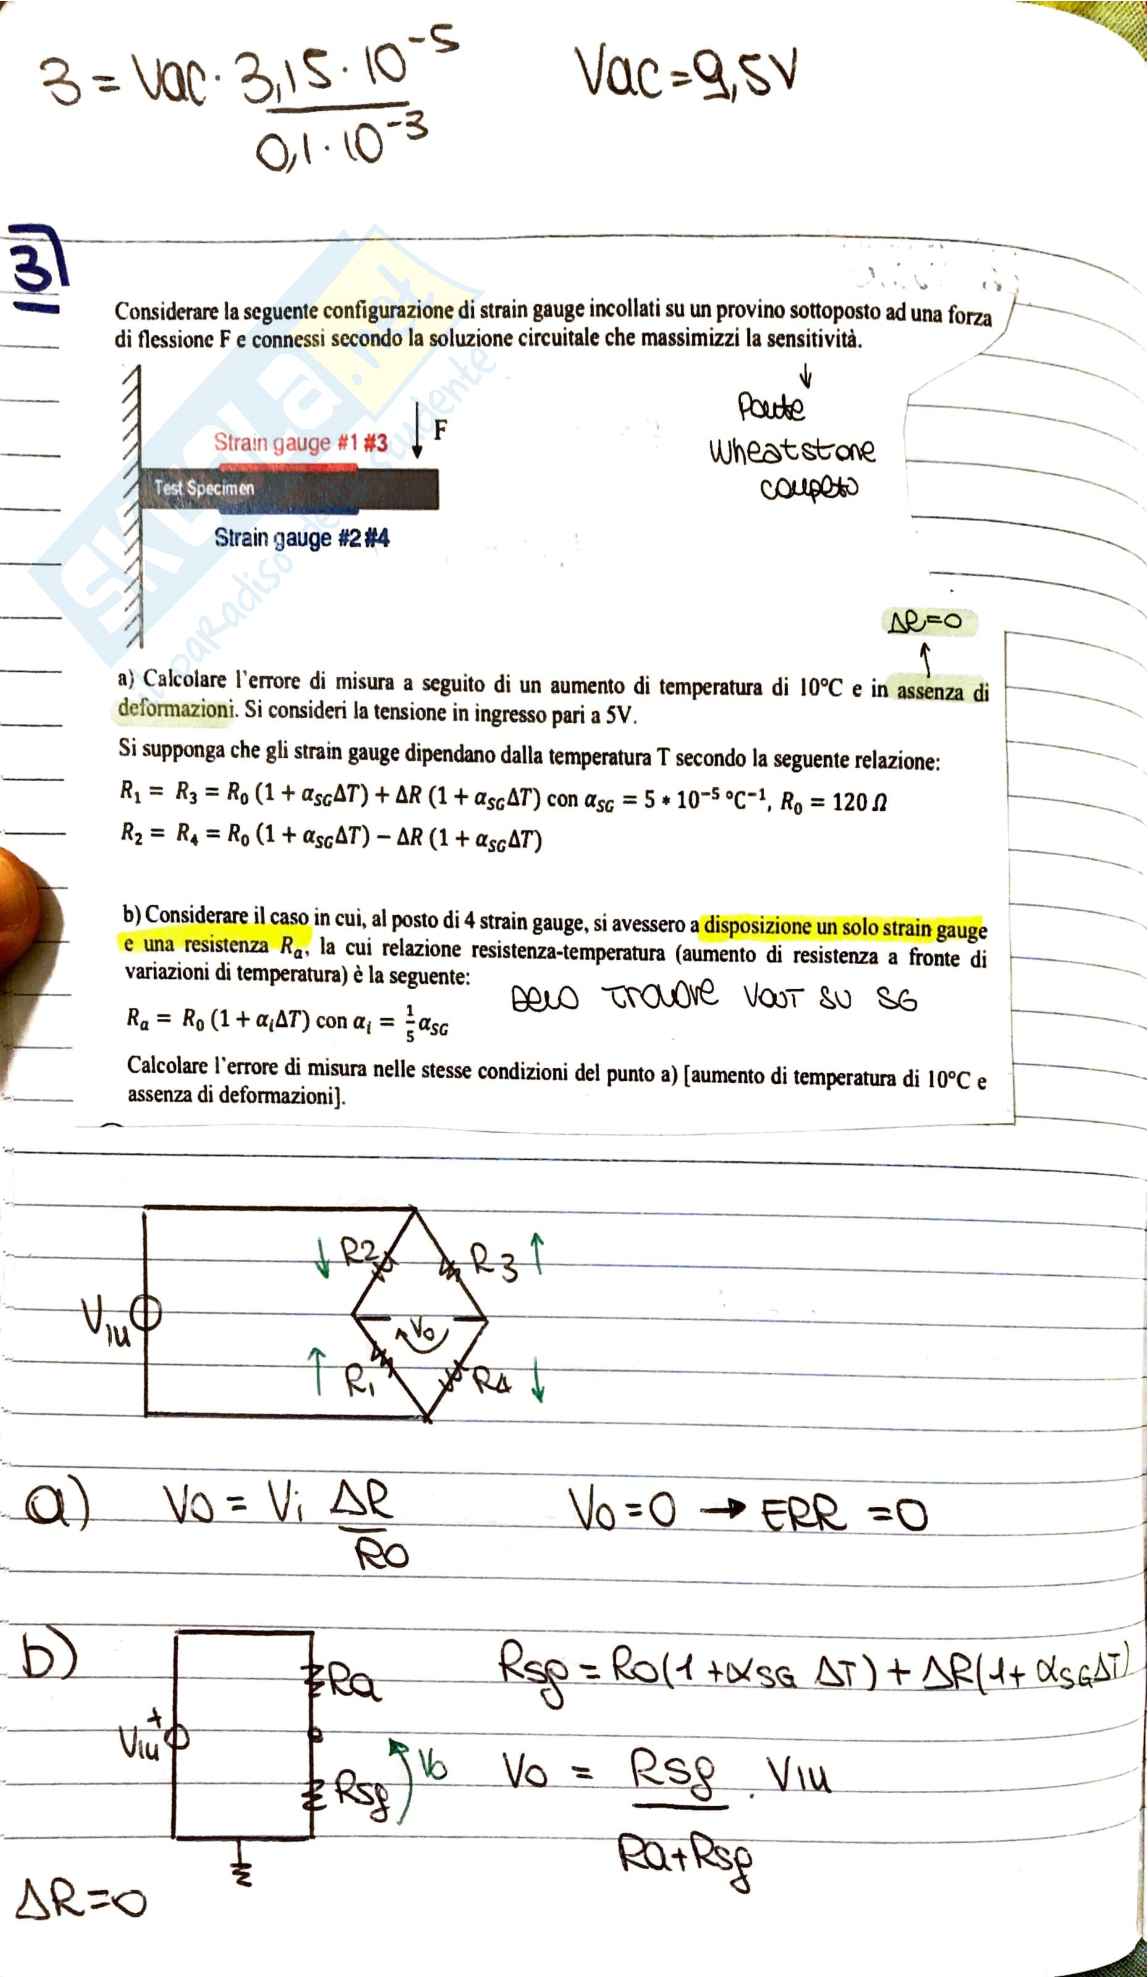 3 = Vac · 3,15 · 10⁻⁵ / 0,1 · 10⁻³
Vac = 9,5V
3)
Considerare la seguente configurazione di strain gauge incollati su un provino sottoposto ad una forza
di flessione F e connessi secondo la soluzione circuitale che massimizzi la sensitività.
↓
Ponte
Wheatstone
completo
F
Strain gauge #1 #3
Test Specimen
Strain gauge #2 #4
SKUOLA.net
ΔR=0
↑
a) Calcolare l'errore di misura a seguito di un aumento di temperatura di 10°C e in assenza di
deformazioni. Si consideri la tensione in ingresso pari a 5V.
Si supponga che gli strain gauge dipendano dalla temperatura T secondo la seguente relazione:
R₁ = R₃ = R₀ (1 + α_SG ΔT) + ΔR (1 + α_SG ΔT) con α_SG = 5 * 10⁻⁵ °C⁻¹, R₀ = 120 Ω
R₂ = R₄ = R₀ (1 + α_SG ΔT) − ΔR (1 + α_SG ΔT)
b) Considerare il caso in cui, al posto di 4 strain gauge, si avessero a disposizione un solo strain gauge
e una resistenza Rₐ, la cui relazione resistenza-temperatura (aumento di resistenza a fronte di
variazioni di temperatura) è la seguente:
DEVO TROVARE VOUT SU SG
Rₐ = R₀ (1 + αᵢΔT) con αᵢ = 1/5 α_SG
Calcolare l'errore di misura nelle stesse condizioni del punto a) [aumento di temperatura di 10°C e
assenza di deformazioni].
↓ R2
R3 ↑
Vin
Vo
↑ R1
R4 ↓
a) Vo = Vi ΔR / R0
Vo=0 → ERR =0
b)
Ra
Rsg = R0(1+α_SG ΔT) + ΔR(1+ α_SG ΔT)
Vin +
Rsg
Vo
Vo = Rsg / Ra+Rsg · Vin
ΔR=0